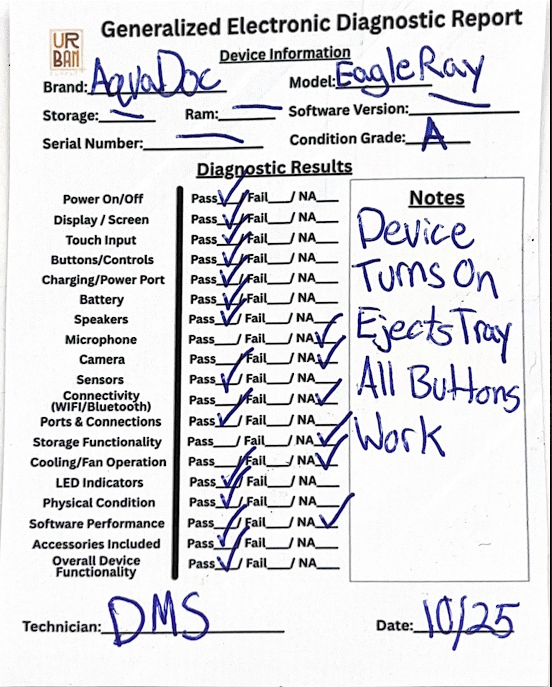 Generalized Electronic Diagnostic Report
UR
BAN
Device Information
Brand: AquaDoc Model: EagleRay
Storage: — Ram: — Software Version: —
Serial Number: — Condition Grade: A
Diagnostic Results
Power On/Off Pass ✓ / Fail___ / NA___
Display / Screen Pass ✓ / Fail___ / NA___
Touch Input Pass ✓ / Fail___ / NA___
Buttons/Controls Pass ✓ / Fail___ / NA___
Charging/Power Port Pass ✓ / Fail___ / NA___
Battery Pass ✓ / Fail___ / NA___
Speakers Pass ✓ / Fail___ / NA___
Microphone Pass___ / Fail___ / NA ✓
Camera Pass___ / Fail___ / NA ✓
Sensors Pass ✓ / Fail___ / NA___
Connectivity
(WIFI/Bluetooth) Pass___ / Fail___ / NA ✓
Ports & Connections Pass ✓ / Fail___ / NA___
Storage Functionality Pass___ / Fail___ / NA ✓
Cooling/Fan Operation Pass___ / Fail___ / NA ✓
LED Indicators Pass ✓ / Fail___ / NA___
Physical Condition Pass ✓ / Fail___ / NA___
Software Performance Pass___ / Fail___ / NA ✓
Accessories Included Pass ✓ / Fail___ / NA___
Overall Device
Functionality Pass ✓ / Fail___ / NA___
Notes
Device
Turns On
Ejects Tray
All Buttons
Work
Technician: DMS Date: 10/25